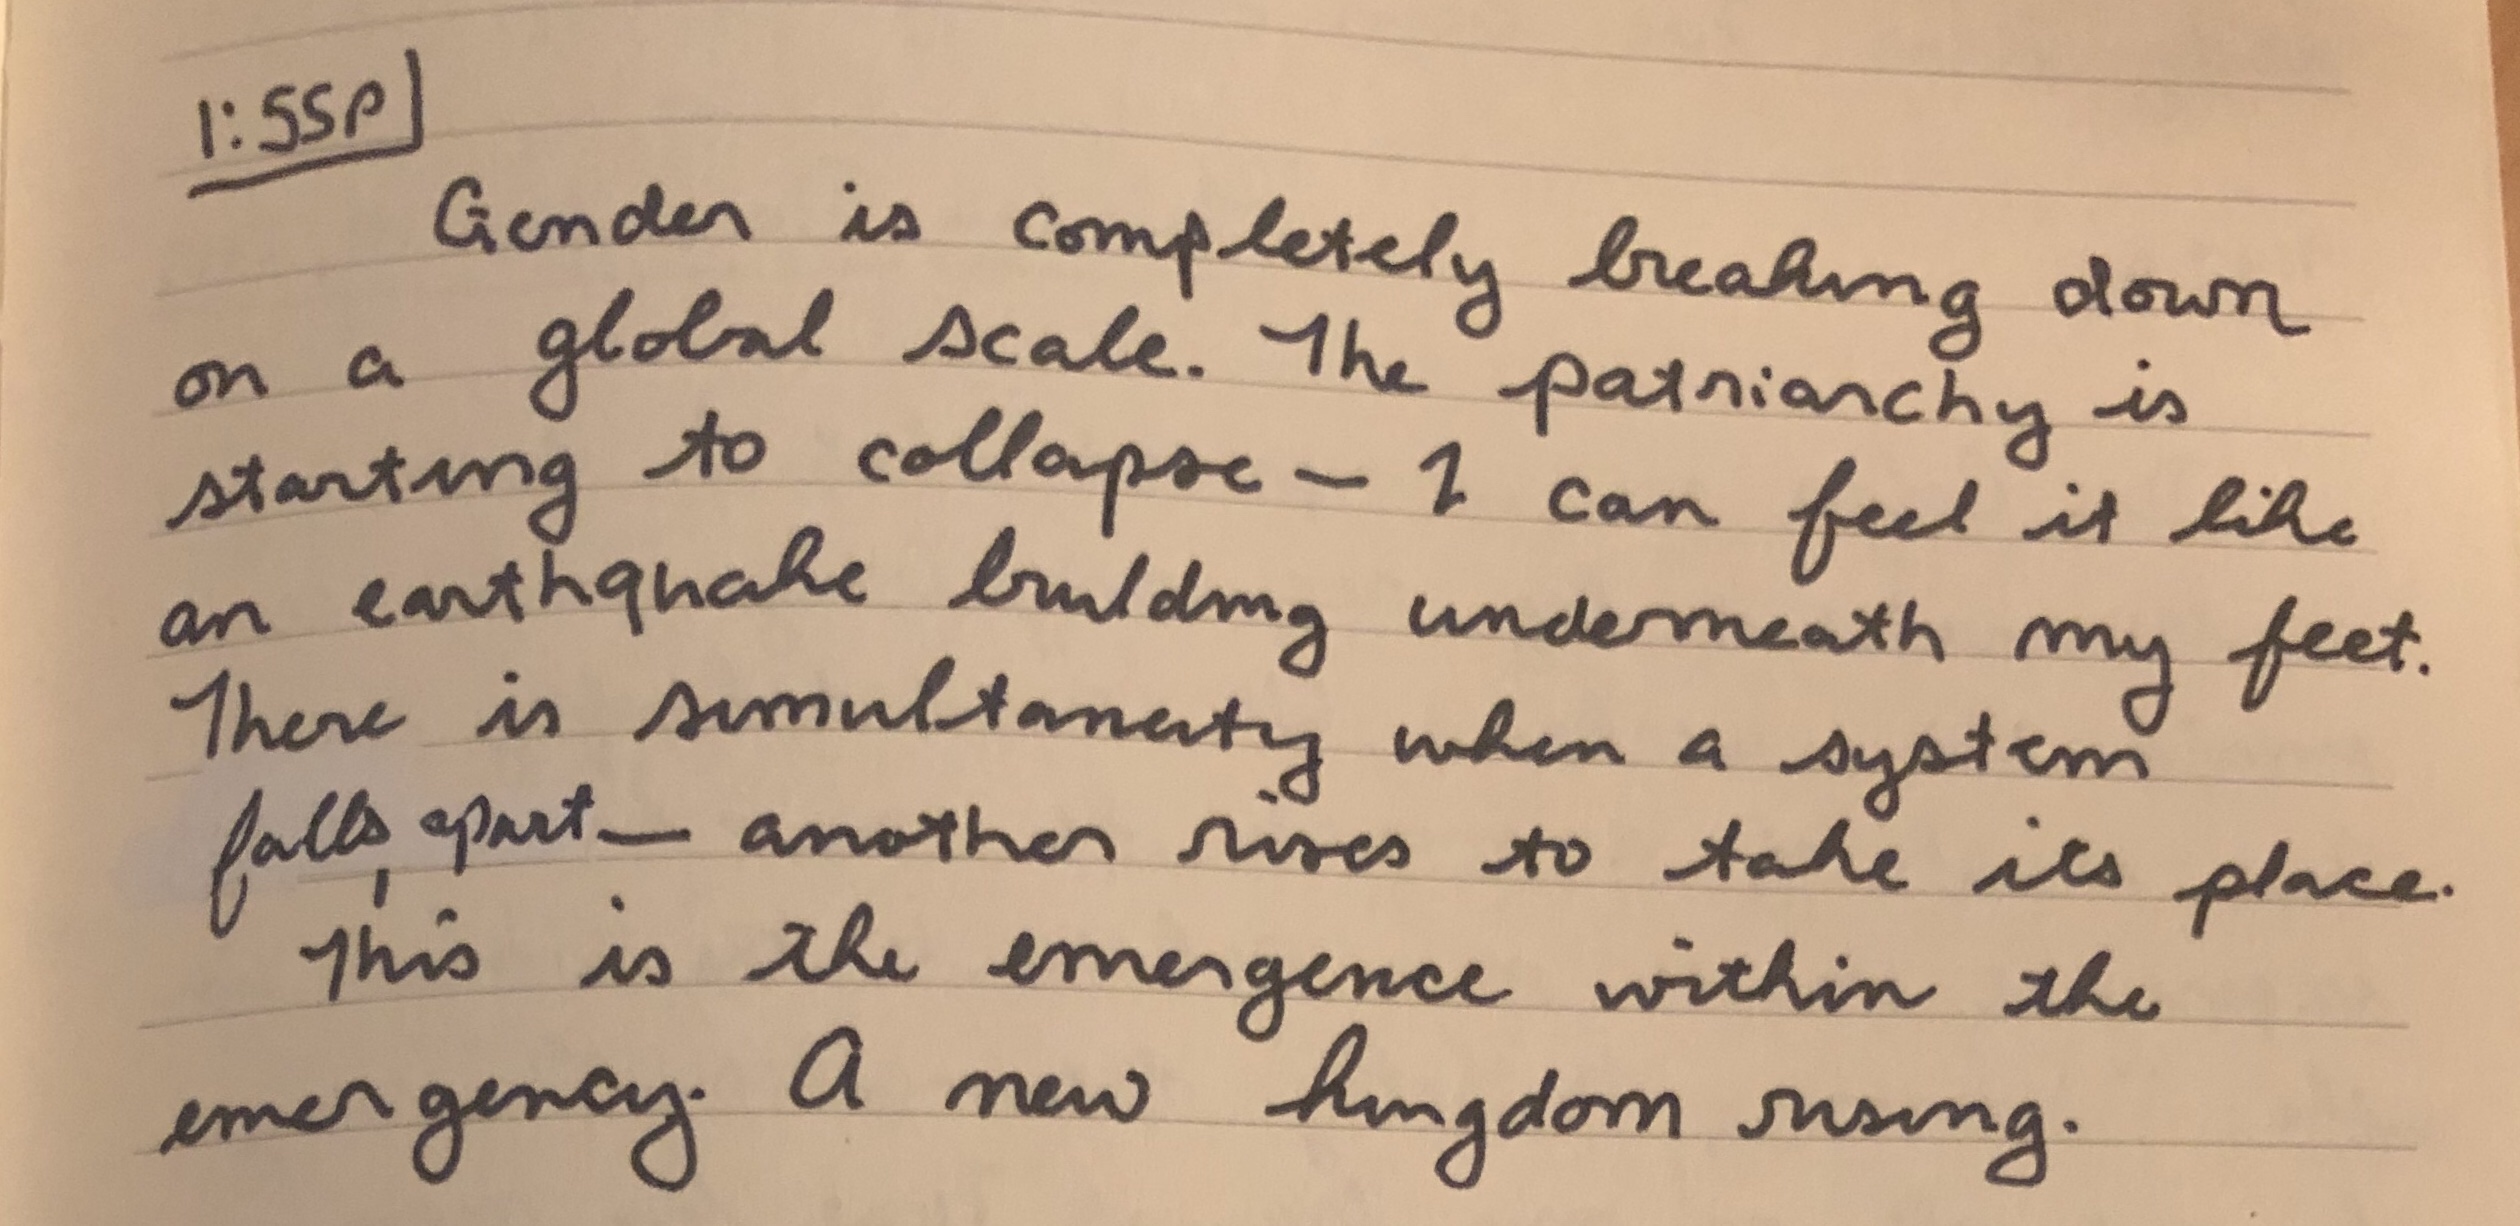 1:55P
Gender is completely breaking down
on a global scale. The patriarchy is
starting to collapse – I can feel it like
an earthquake building underneath my feet.
There is simultaneity when a system
falls apart – another rises to take its place.
This is the emergence within the
emergency. A new kingdom rising.